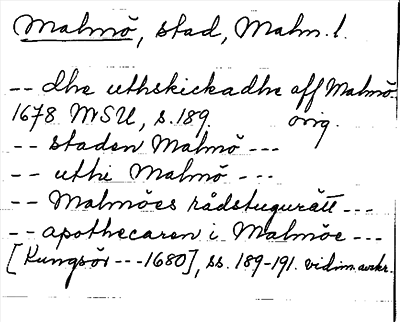 Malmö, stad, Malm. l.
-- dhe uthskickadhe aff Malmö
1678 MSU, s. 189. orig.
-- staden Malmö ---
-- uthi Malmö ---
-- Malmöes rådstugurätt ---
-- apothecaren i Malmöe ---
[Kungsör --- 1680], ss. 189-191. vidim. avskr.